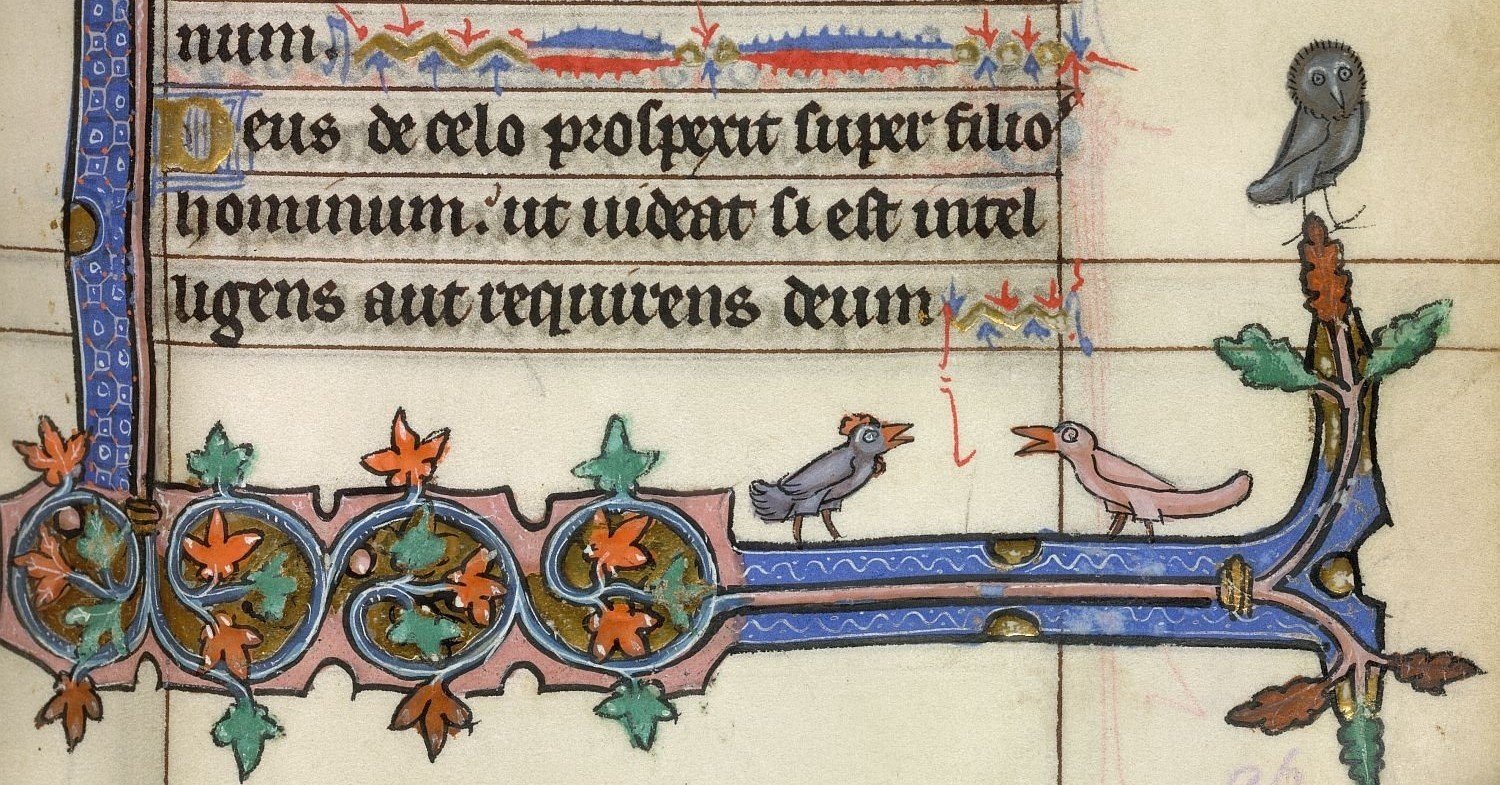 num.
Deus de celo prospexit super filios
hominum. ut uideat si est intel
ligens aut requirens deum